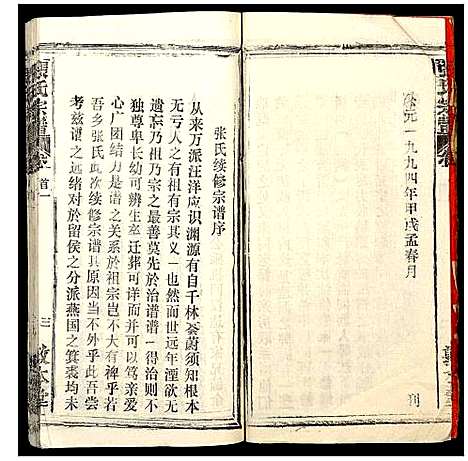 公元一九九四年甲戌孟春月
刊
张氏续修宗谱序
从来万派汪洋应识渊源有自千林蓊蔚须知根本
无亏人之有祖有宗其义一也然而世远年湮欲无
遗忘乃祖乃宗之最善莫先於治谱谱一得治则不
独尊卑长幼可辨生卒迁葬可详而并可以笃亲爱
心广团结力是谱之关系於祖宗岂不大有裨乎若
吾乡张氏此次续修宗谱其原因当不外乎此吾尝
考兹谱之远绪对於留侯之分派燕国之箕裘均未
张氏宗谱
卷
首一
三
敦本堂